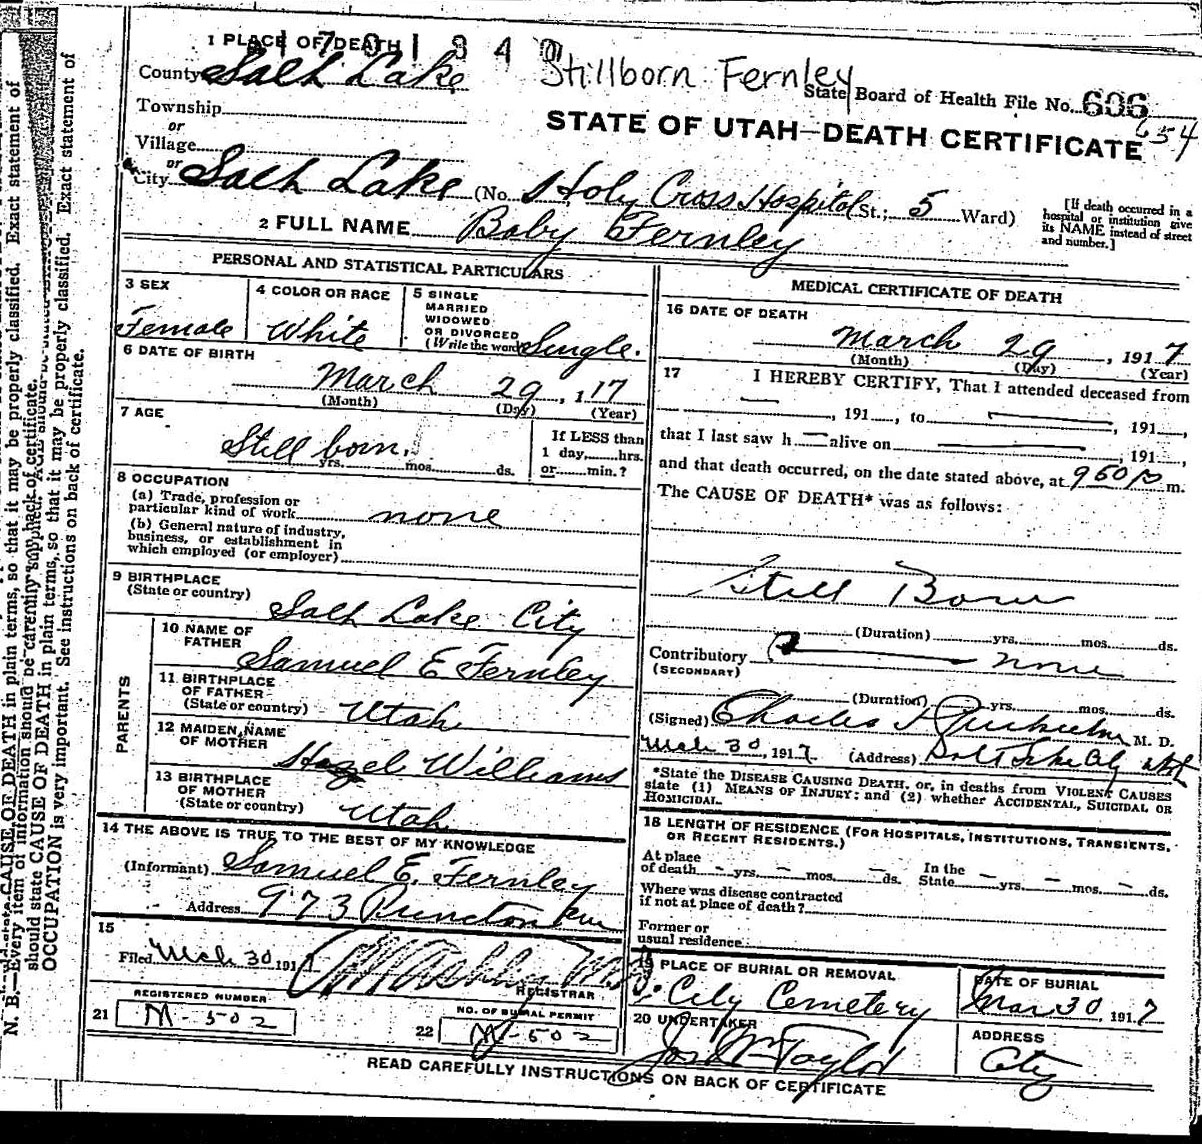 1 PLACE OF DEATH
Stillborn Fernley
County Salt Lake
State Board of Health File No. 606
654
Township
or
Village
STATE OF UTAH—DEATH CERTIFICATE
or
City Salt Lake (No. Holy Cross Hospital St.; 5 Ward)
[If death occurred in a
hospital or institution give
its NAME instead of street
and number.]
2 FULL NAME Baby Fernley
PERSONAL AND STATISTICAL PARTICULARS
3 SEX
Female
4 COLOR OR RACE
White
5 SINGLE
MARRIED
WIDOWED
OR DIVORCED
(Write the word) Single.
6 DATE OF BIRTH
March 29, 117
(Month) (Day) (Year)
7 AGE
Still born.
yrs. mos. ds.
If LESS than
1 day, hrs.
or min.?
8 OCCUPATION
(a) Trade, profession or
particular kind of work none
(b) General nature of industry,
business, or establishment in
which employed (or employer)
9 BIRTHPLACE
(State or country) Salt Lake City
PARENTS
10 NAME OF
FATHER
Samuel E Fernley
11 BIRTHPLACE
OF FATHER
(State or country) Utah
12 MAIDEN NAME
OF MOTHER
Hazel Williams
13 BIRTHPLACE
OF MOTHER
(State or country) Utah
14 THE ABOVE IS TRUE TO THE BEST OF MY KNOWLEDGE
(Informant) Samuel E. Fernley
Address 973
15
Filed Mch 30, 191
REGISTRAR
REGISTERED NUMBER
21 M-502
NO. OF BURIAL PERMIT
22 M-502
MEDICAL CERTIFICATE OF DEATH
16 DATE OF DEATH
March 29, 1917
(Month) (Day) (Year)
17 I HEREBY CERTIFY, That I attended deceased from
, 191 , to , 191 ,
that I last saw h alive on , 191 ,
and that death occurred, on the date stated above, at 950 P m.
The CAUSE OF DEATH* was as follows:
Still Born
(Duration) yrs. mos. ds.
Contributory none
(SECONDARY)
(Duration) yrs. mos. ds.
(Signed) Charles M. D.
Mch 30, 1917 (Address) Salt Lake City Utah
*State the DISEASE CAUSING DEATH, or, in deaths from VIOLENT CAUSES
state (1) MEANS OF INJURY; and (2) whether ACCIDENTAL, SUICIDAL OR
HOMICIDAL.
18 LENGTH OF RESIDENCE (FOR HOSPITALS, INSTITUTIONS, TRANSIENTS,
OR RECENT RESIDENTS.)
At place
of death - yrs. - mos. - ds. In the
State - yrs. - mos. - ds.
Where was disease contracted
if not at place of death?
Former or
usual residence
19 PLACE OF BURIAL OR REMOVAL
City Cemetery
DATE OF BURIAL
Mar 30, 1917
20 UNDERTAKER
Jos Wm Taylor
ADDRESS
City
READ CAREFULLY INSTRUCTIONS ON BACK OF CERTIFICATE
N. B.—Every item of information should be carefully supplied. AGE should be stated
should state CAUSE OF DEATH in plain terms, so that it may be properly classified. Exact statement of
OCCUPATION is very important. See instructions on back of certificate.